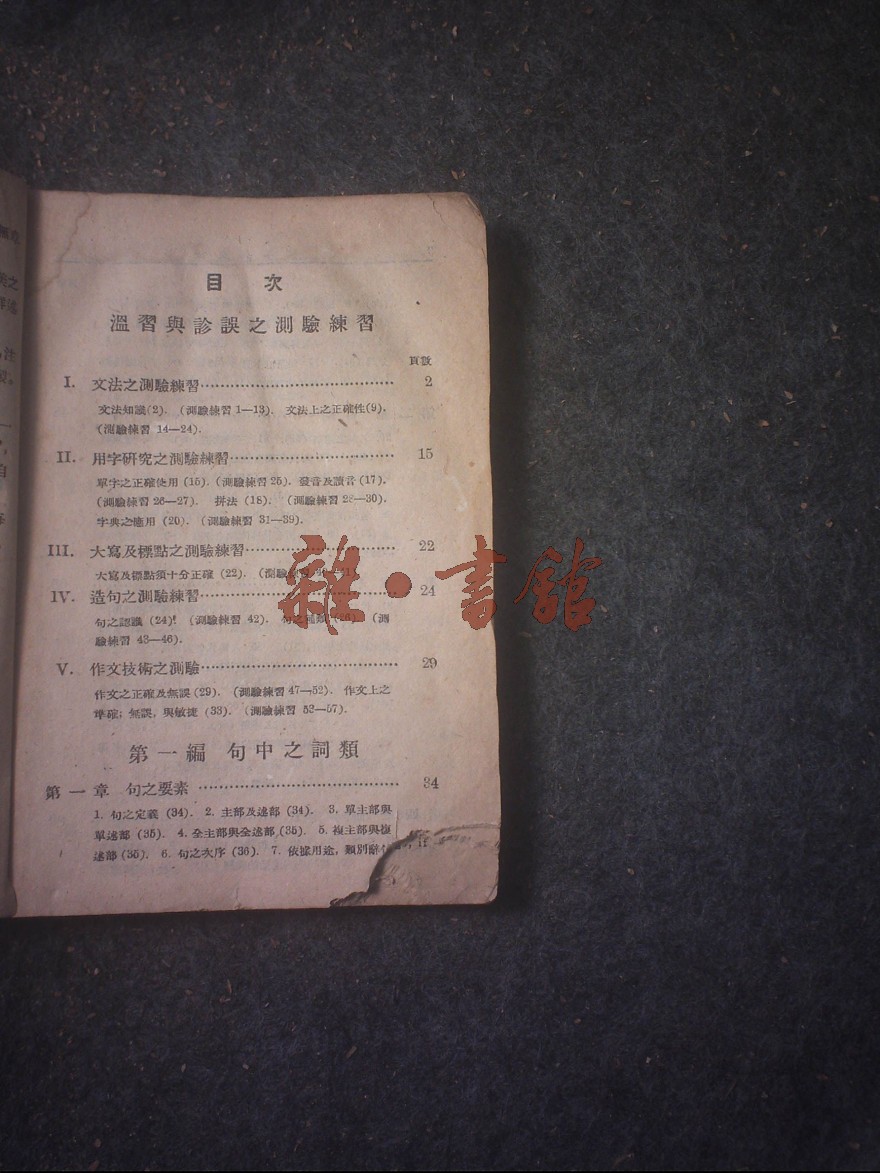 目 次
溫習與診誤之測驗練習
頁數
I. 文法之測驗練習 2
文法知識(2). (測驗練習 1—13). 文法上之正確性(9).
(測驗練習 14—24).
II. 用字研究之測驗練習 15
單字之正確使用 (15). (測驗練習 25). 發音及讀音 (17).
(測驗練習 26—27). 拼法 (18). (測驗練習 28—30).
字典之應用 (20). (測驗練習 31—39).
III. 大寫及標點之測驗練習 22
大寫及標點須十分正確 (22). (測驗
IV. 造句之測驗練習 24
句之認識 (24). (測驗練習 42). 句之種類 (測
驗練習 43—46).
V. 作文技術之測驗 29
作文之正確及無誤 (29). (測驗練習 47—52). 作文上之
準確; 無誤, 與敏捷 (33). (測驗練習 53—57).
第一編 句中之詞類
第一章 句之要素 34
1. 句之定義 (34). 2. 主部及述部 (34). 3. 單主部與
單述部 (35). 4. 全主部與全述部 (35). 5. 複主部與複
述部 (35). 6. 句之次序 (36). 7. 依據用途, 類別辭
雜·書館